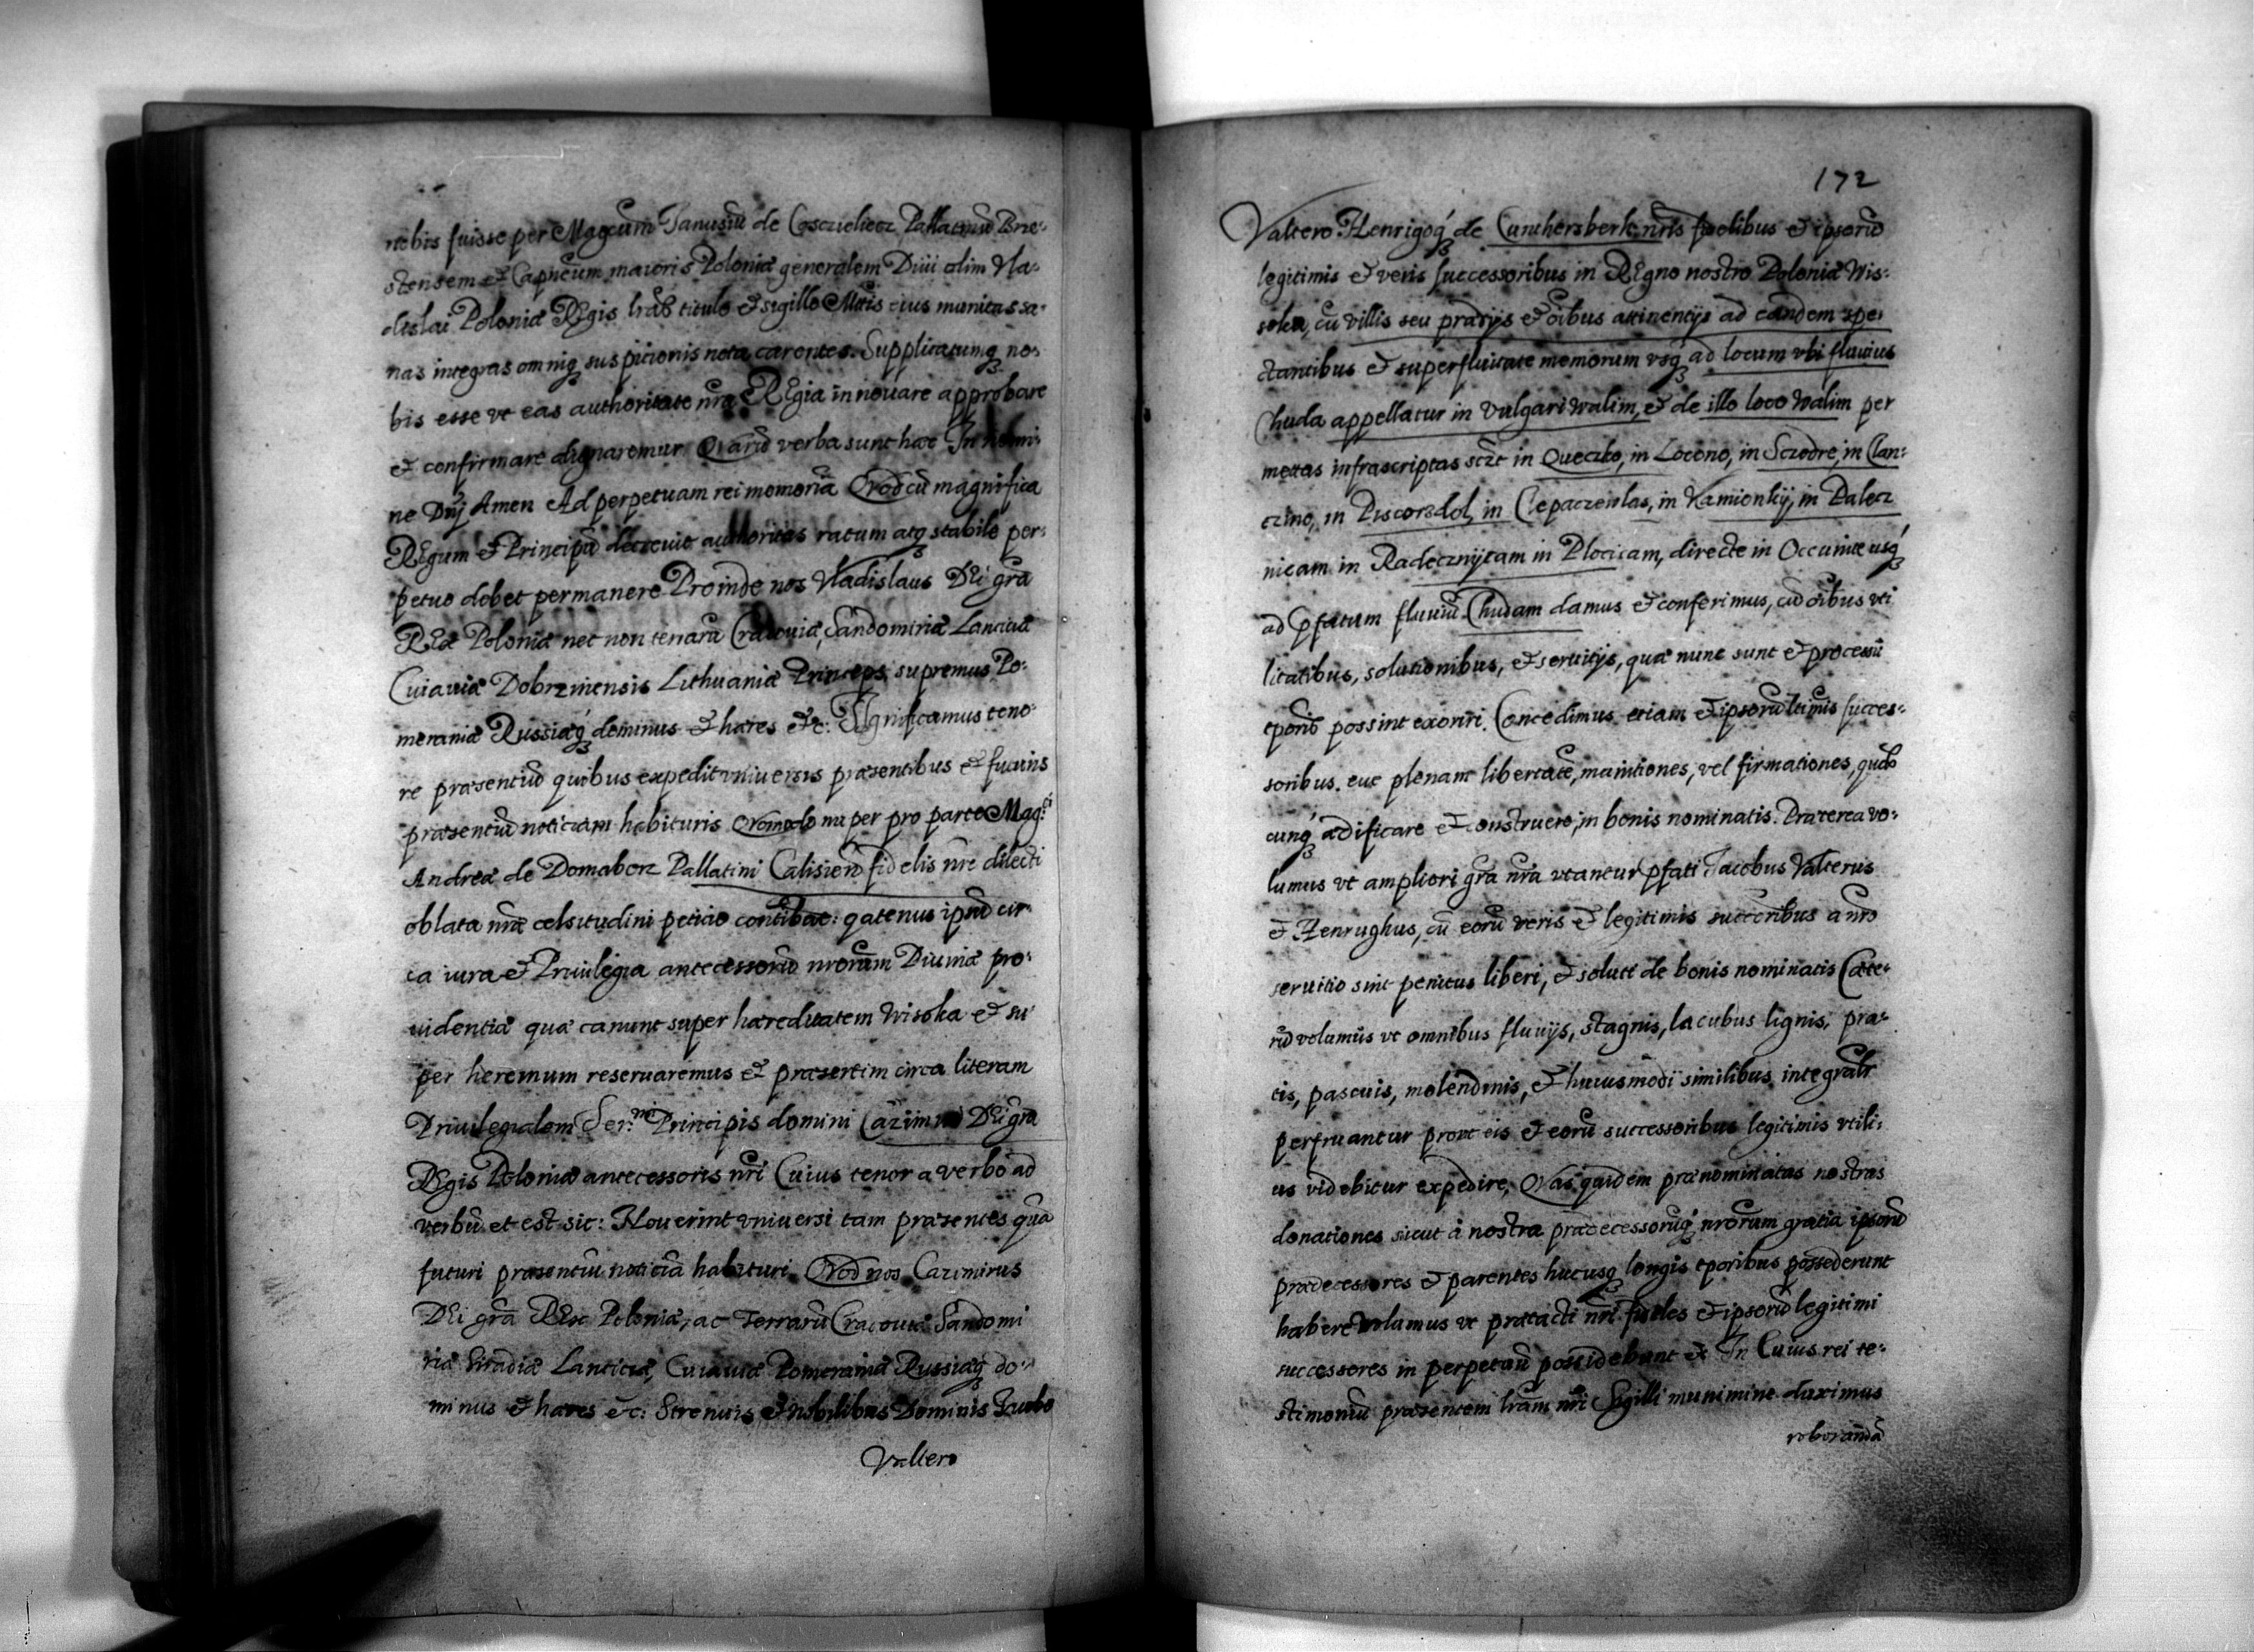 nobis fuisse per Magcum Janusiũ de Cosczieliecz Pallatinũ Brze-
stensem et Capneum maioris Poloniæ generalem Diui olim Vla-
dislai Poloniæ Regis lrãs titulo et sigillo Mttis eius munitas sa-
nas integras omniq3 suspicionis nota carentes. Supplicatumq3 no-
bis esse vt eas authoritate nr̃a Regia innouare approbare
et confirmare dignaremur Quarũ verba sunt hæc In nomi-
ne Dnĩ Amen Ad perpetuam rei memoriã Quod cũ magnifica
Regum et Principũ decreuit authoritas ratum atq3 stabile per-
petuo debet permanere Proinde nos Vladislaus Dei gr̃a
Rex Poloniæ nec non terrarũ Cracouiæ, Sandomiriæ Lanciciæ
Cuiauiæ Dobrzinensis Lithuaniæ Princeps supremus Po-
meraniæ Russiæq3 dominus et hæres etc: Significamus teno-
re præsentiũ quibus expedit vniuersis præsentibus et futuris
præsentiũ noticiam habituris Quomodo nuper pro parte Mag:ci
Andreæ de Domaborz Pallatini Calisien̄ fidelis nr̃e dilecti
oblata nr̃æ celsitudini peticio contibat: qatenus ipsũ cir-
ca iura et Priuilegia antecessorũ nrorum Diuinæ pro-
uidentiæ quæ canunt super hæreditatem Wisoka et su-
per heremum reseruaremus et præsertim circa literam
Priuilegialem Ser:mi Principis domini Cazimiri Dei gr̃a
Regis Poloniæ antecessoris nr̃i Cuius tenor a verbo ad
verbũ et est sic: Nouerint vniuersi tam præsentes quã
futuri præsentiũ noticiã habituri Quod nos Cazimirus
Dei gr̃a Rex Poloniæ, ac Terrarũ Cracouiæ Sandomi
riæ Siradiæ Lanciciæ, Cuiauiæ Pomeraniæ Russiæq3 do-
minus et hæres etc: Strenuis et nobilibus Dominis
Valtero
172
Valtero Henrigoq3 de Cunthersberk nr̃is fidelibus et ipsorũ
legitimis et veris successoribus in Regno nostro Poloniæ Wis-
soka, cũ villis seu prædijs et oĩbus attinentijs ad eandem spe-
ctantibus et superfluitate nemorum vsq3 ad locum vbi fluuius
Chuda appellatur in vulgari Walim, et de illo loco Walim per
mettas infrascriptas sczt in Queczko, in Locono, in Sczodre, in Clan-
czino, in Piscorzdol, in Clepaczewlas, in Kamionkij, in Palecz
nicam in Radecznijcam in Plocicam, directe in Occunite usq3
ad pfatum fluuiũ Chudam damus et conferimus, cũ oĩbus vti
litatibus, solutionibus, et seruitijs, quæ nunc sunt et processũ
tporis possint exoriri. Concedimus etiam et ipsorũ ltimis succes-
soribus. eut plenam libertatẽ, munitiones, vel firmationes, quas
cunq3 ædificare et construere, in bonis nominatis. Præterea vo-
lumus vt ampliori gr̃a nr̃a vtantur pfati Jacobus Valterus
et Henrughus, cũ eorũ veris et legitimis succoribus a nr̃o
seruitio sint penitus liberi, et soluti de bonis nominatis Cæte-
rũ volumus vt omnibus fluuijs, stagnis, lacubus lignis, pra-
tis, pascuis, molendinis, et huiusmodi similibus integralr
perfruantur prout eis et eorũ successoribus legitimis vtili-
us videbitur expedire, Quas quidem prænominatas nostras
donationes sicut à nostra prædecessorũq3 nrorum gratia ipsorũ
prædecessores et parentes hucusq3 longis tporibus possederunt
habere volumus vt prætacti nr̃i fideles et ipsorũ legitimi
successores in perpetuũ possidebunt et In Cuius rei te-
stimoniũ præsentem lr̃am nr̃i Sigilli munimine duximus
roborandã